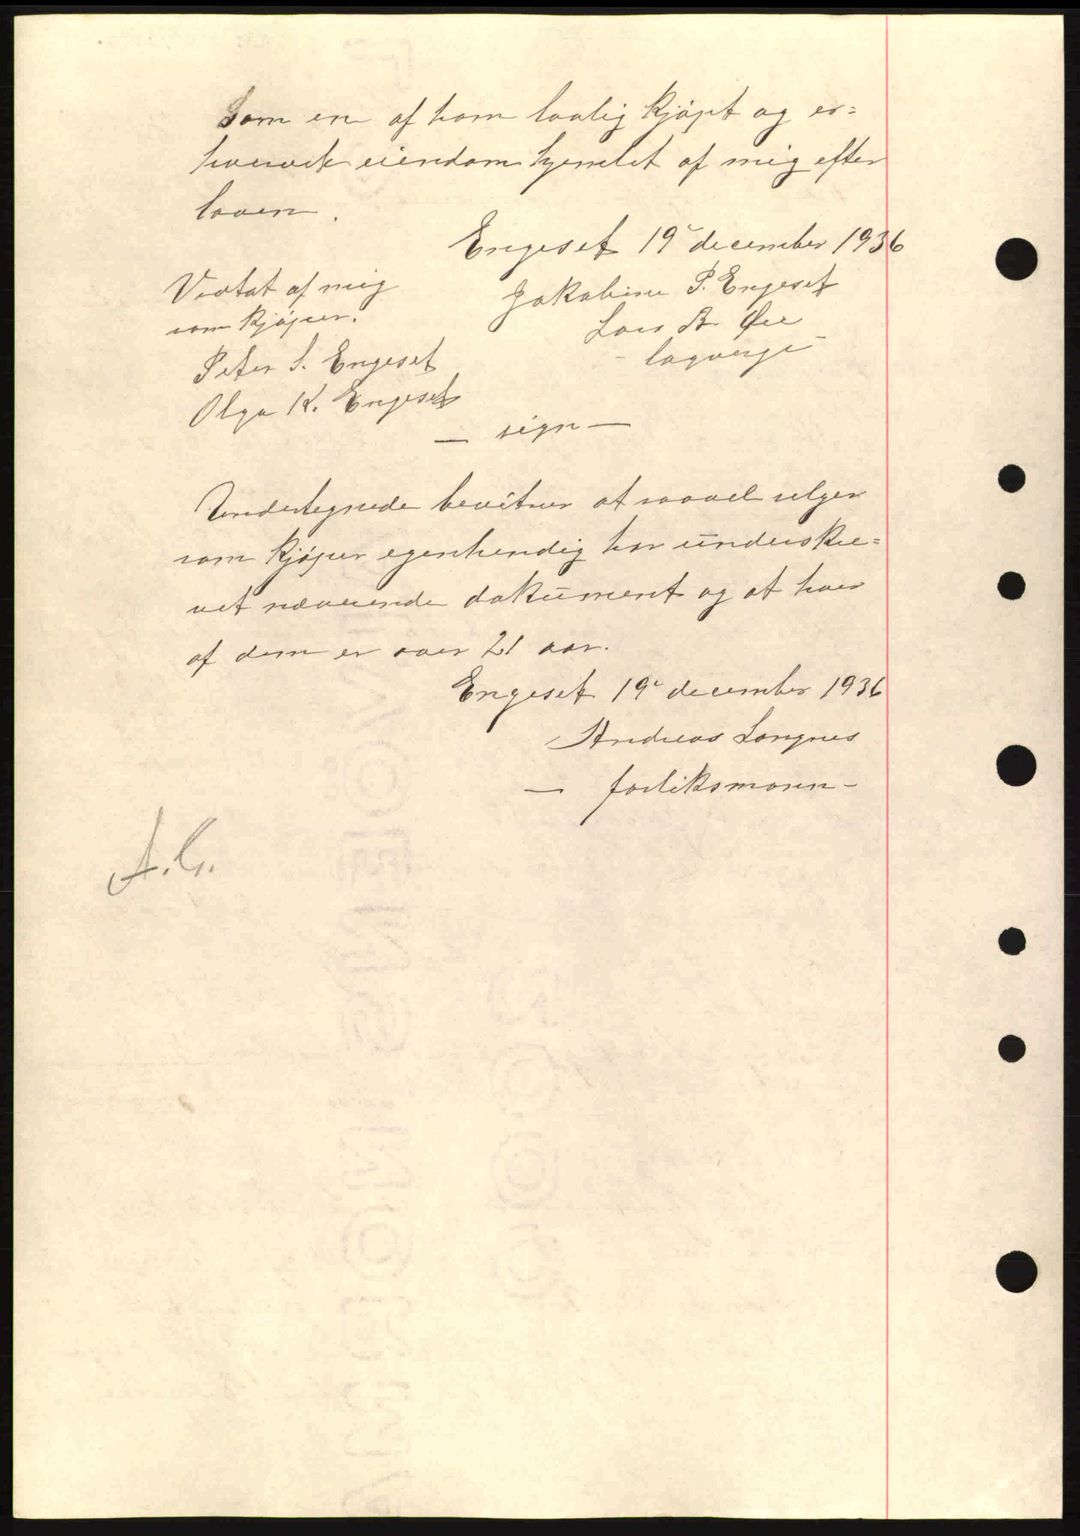 Som en af ham lovlig kjøpt og er=
hvervet eiendom hjemlet af mig efter
loven.
Engeset 19 december 1936
Vedtat af mig
som kjøper.
Jakobine P. Engeset
Lars A. Øie
- lagverge -
Peter S. Engeset
Olga K. Engeset
— sign —
Undertegnede bevitner at saavel selger
som kjøper egenhendig har underskre=
vet nærverende dokument og at hver
af dem er over 21 aar.
Engeset 19 december 1936
Andreas Longnes
— forliksmann -
A.G.